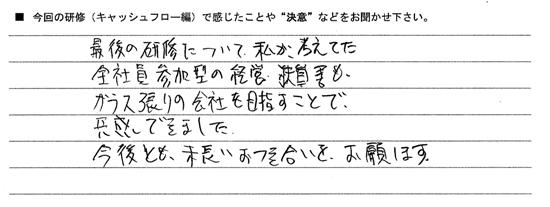 ■ 今回の研修（キャッシュフロー編）で感じたことや“決意”などをお聞かせ下さい。
最後の研修について、私が、考えてた
全社員参加型の経営
ガラス張りの会社を目指すことで、
共感しできました。
今後とも、末長いおつき合いを、お願します。